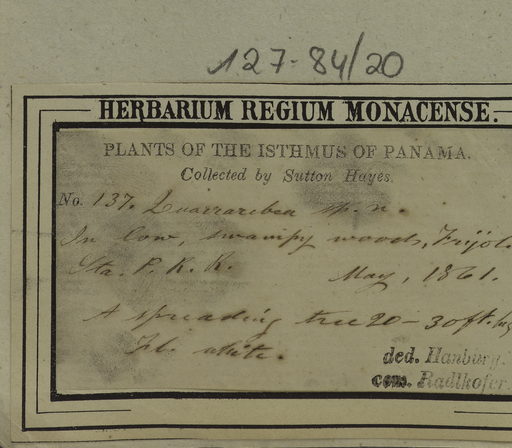 127-84/20
HERBARIUM REGIUM MONACENSE.
PLANTS OF THE ISTHMUS OF PANAMA.
Collected by Sutton Hayes.
No. 137. Quararibea sp. n.
In low, swampy woods, Frijol.
Sta. P. R. R.
May, 1861.
A spreading tree 20-30 ft.
Fl. white.
ded. Hanbury.
com. Radlkofer.